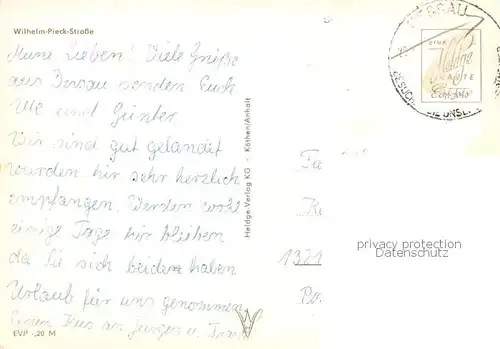 Wilhelm-Pieck-Straße
Meine Lieben! Viele Grüße
aus Dessau senden Euch
Ute und Günter
Wir sind gut gelandet
wurden hir sehr herzlich
empfangen. Werden wohl
einige Tage hir bleiben
da Sie sich beidere haben
Urlaub für uns genommen
Einen Kuss an Jungen u.
EVP -,20 M
Heldge-Verlag KG - Köthen/Anhalt
DESSAU
EINE
Heldge
KARTE
Echt Foto
BESUCH
1321
privacy protection
Datenschutz